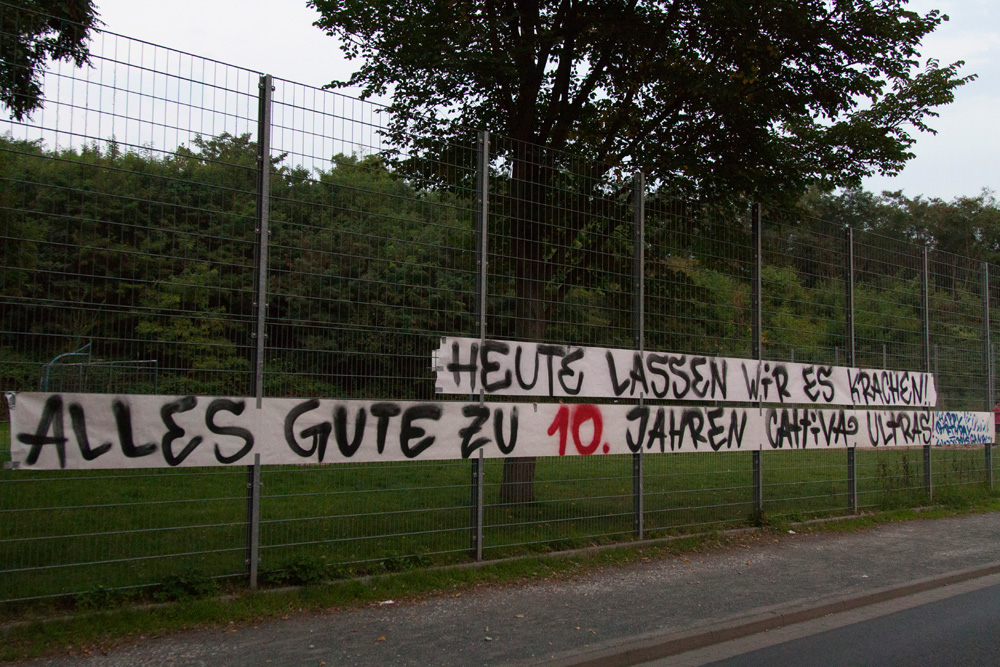 HEUTE LASSEN WIR ES KRACHEN!
ALLES GUTE ZU 10. JAHREN CATTIVA ULTRAS